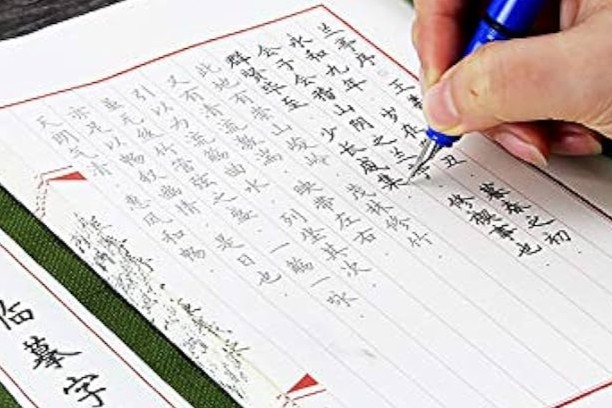 兰亭序 王
永和九年 岁 丑 暮春之初
会于会稽山阴之兰 修禊事也
群贤毕至 少长咸集
此地有崇山峻岭 茂林修竹
又有清流激湍 映带左右
引以为流觞曲水 列坐其次
虽无丝竹管弦之盛 一觞一咏
亦足以畅叙幽情 是日也
天朗气清 惠风和畅
临摹字